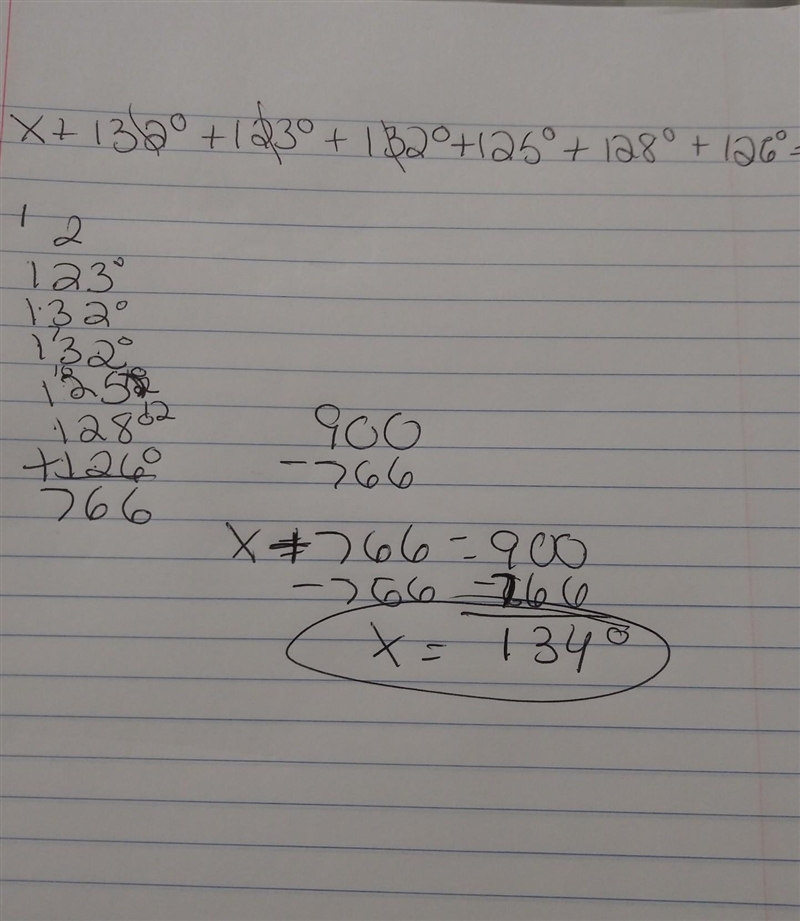 x + 132° + 123° + 132° + 125° + 128° + 126° =
1 2
123°
132°
132°
125
128°
+126°
766
900
-766
x + 766 = 900
-766 -766
x = 134°